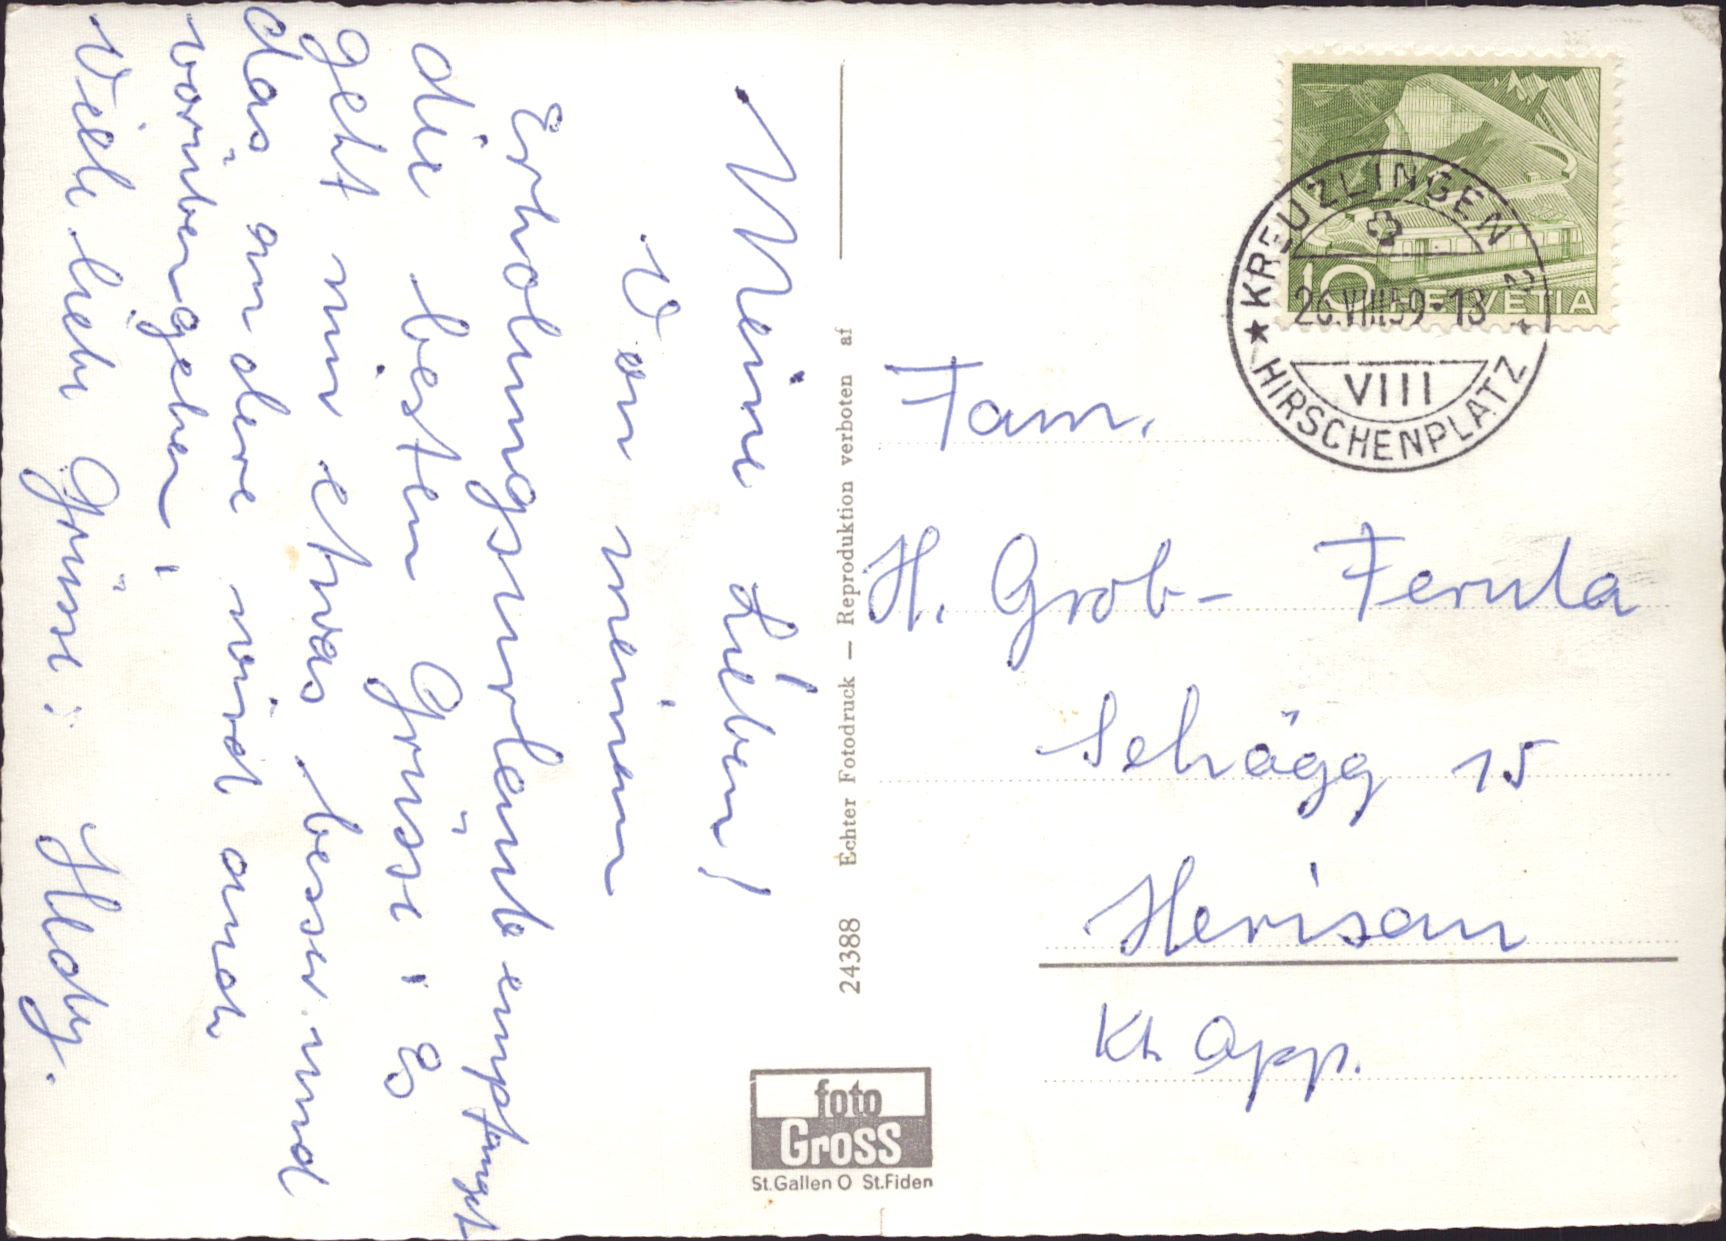 Meine Lieben!
Von meinem
Erholungsurlaub empfanget
die besten Grüsse. Es
geht mir etwas besser und
das andere wird auch
vorübergehen.
Viele liebe Grüsse: Hedy.
24388 Echter Fotodruck — Reproduktion verboten af
foto
Gross
St.Gallen O St.Fiden
10 HELVETIA
KREUZLINGEN 2
26.VIII.59-13
VIII
HIRSCHENPLATZ
Fam.
H. Grob-Ferula
Schägg 15
Herisau
Kt. App.